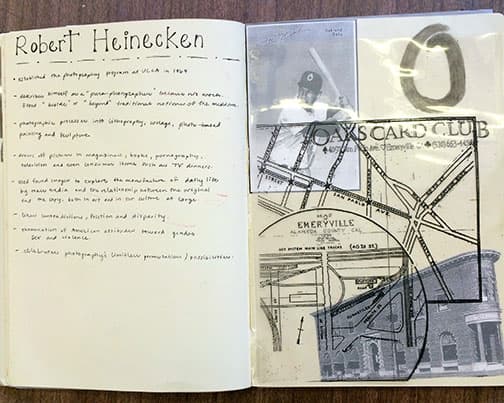 Robert Heinecken
- established the photography program at UCLA in 1964
- describes himself as a "para-photographer" because his work
stood "beside" or "beyond" traditional notions of the medium.
- photographic processes into lithography, collage, photo-based
painting and sculpture.
- pictures in magazines, books, pornography,
television and even consumer items such as TV dinners.
- used found images to explore the manufacture of daily life
by mass media and the relationship between the original
and the copy, both in art and in our culture at large.
- contradictions, friction and disparity.
- examination of American attitudes toward gender
sex and violence.
- celebrates photography's limitless permutations / possibilities
O
OAKS CARD CLUB
Emeryville
(510) 653-4456
SAN PABLO AVE
MAP
EMERYVILLE
ALAMEDA COUNTY CAL
KEY SYSTEM MAIN LINE TRACKS
(40TH ST.)